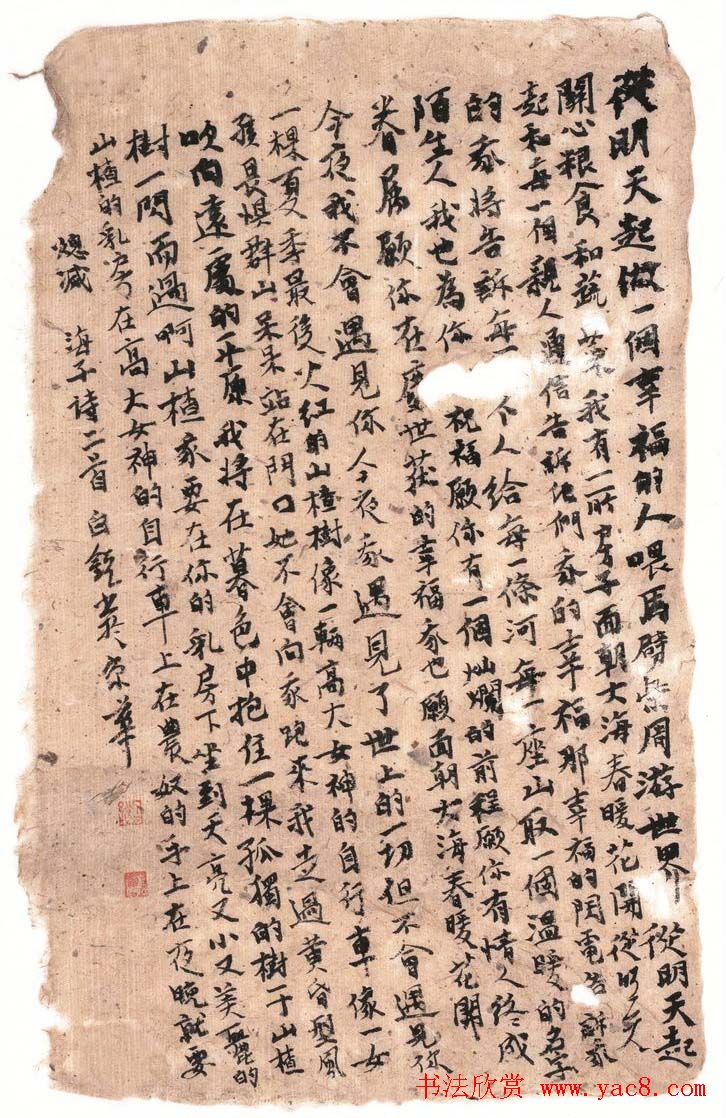 從明天起做一個幸福的人喂馬劈柴周游世界從明天起
關心粮食和蔬菜我有一所房子面朝大海春暖花開從明天
起和每一個親人通信告訴他們我的幸福那幸福的閃電告訴我
的我將告訴每一个人給每一條河每一座山取一個温暖的名字
陌生人我也為你祝福願你有一個灿爛的前程願你有情人終成
眷屬願你在塵世获的幸福我也願面朝大海春暖花開
今夜我不會遇見你今夜我遇見了世上的一切但不會遇見你
一棵夏季最後火红的山楂樹像一輛高大女神的自行車像一女
孩畏惧群山呆呆站在門口她不會向我跑來我走過黄昏型風
吹向遠處的平原我將在暮色中抱住一棵孤獨的樹干山楂
樹一閃而過啊山楂我要在你的乳房下坐到天亮又小又美麗的
山楂的乳房在高大女神的自行車上在農奴的手上在夜晚就要
熄滅 海子诗二首 白 書於京華
书法欣赏 www.yac8.com